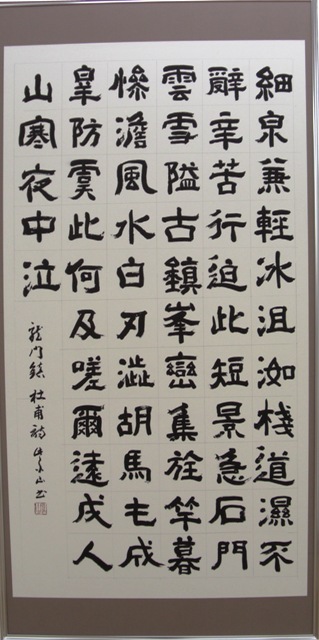 細泉兼輕冰沮洳棧道濕不
辭辛苦行迫此短景急石門
雲雪隘古鎮峯巒集旌竿暮
慘澹風水白刃澀胡馬屯成
皐防虞此何及嗟爾遠戍人
山寒夜中泣
龍門鎮 杜甫詩 山書